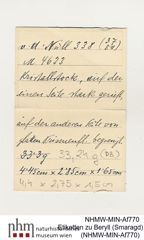 v. d. Nüll 338 (37/26)
M. 4633
Kristallstock, auf der
einen Seite stark gerieft,
auf der anderen Seite von
glatten Prismenfl. begrenzt.
33·3 g 33,24 g (DB)
4·45cm x 2·85cm x 1·65cm
4,4 x 2,75 x 1,5cm
NHMW-MIN-Af770
Etiketten zu Beryll (Smaragd)
(NHMW-MIN-Af770)
nhm
naturhistorisches
museum wien